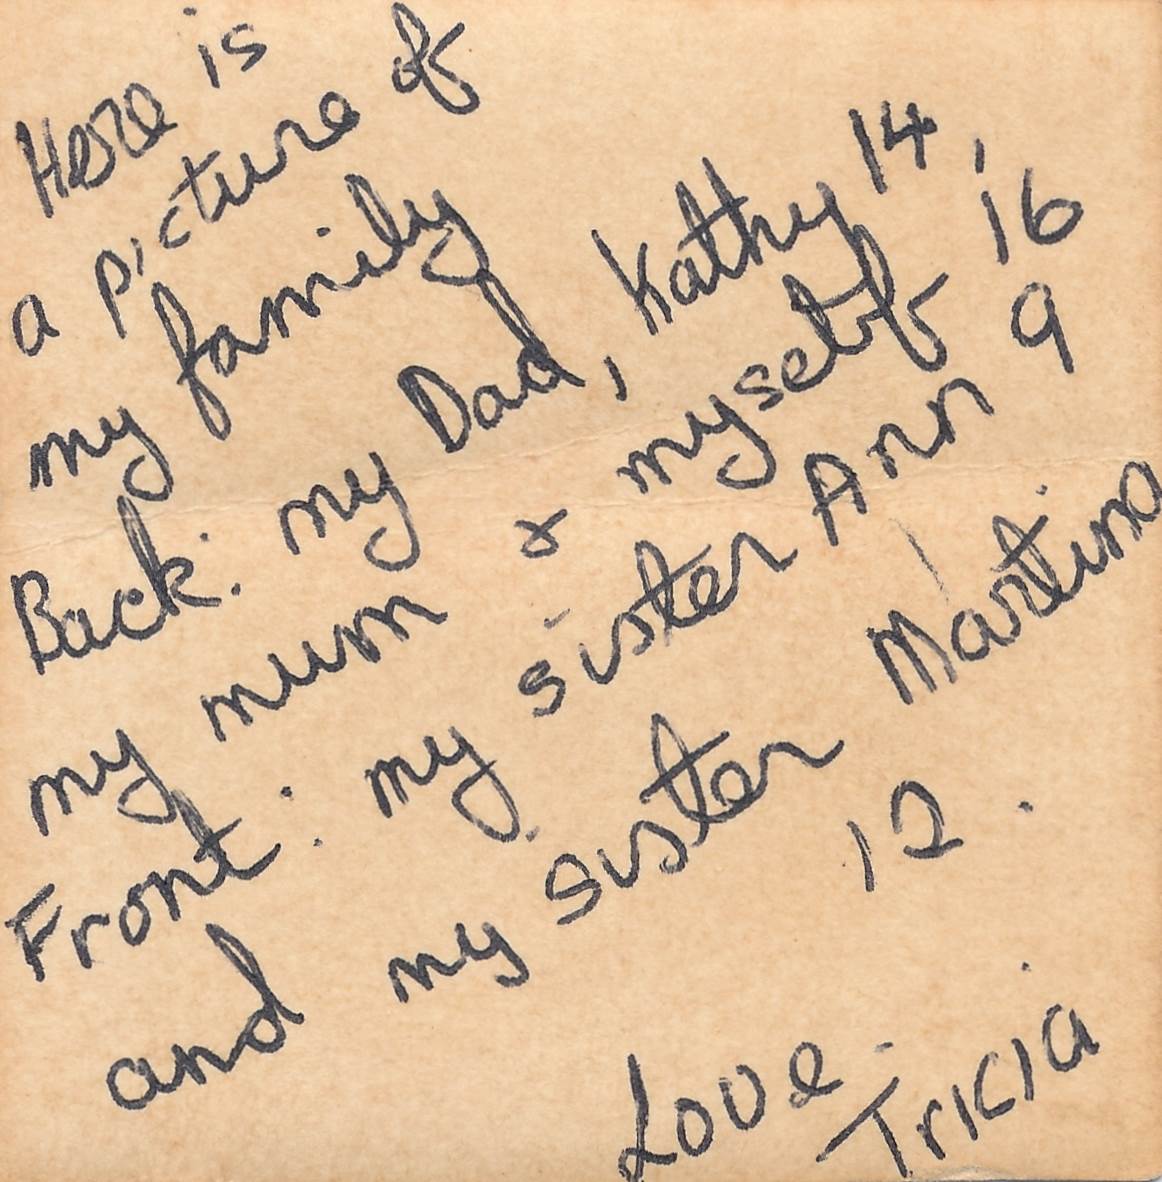 Here is
a picture of
my family
Back: my Dad, Kathy 14,
my mum & myself 16
Front: my sister Ann 9
and my sister Martina
12.
Love
Tricia